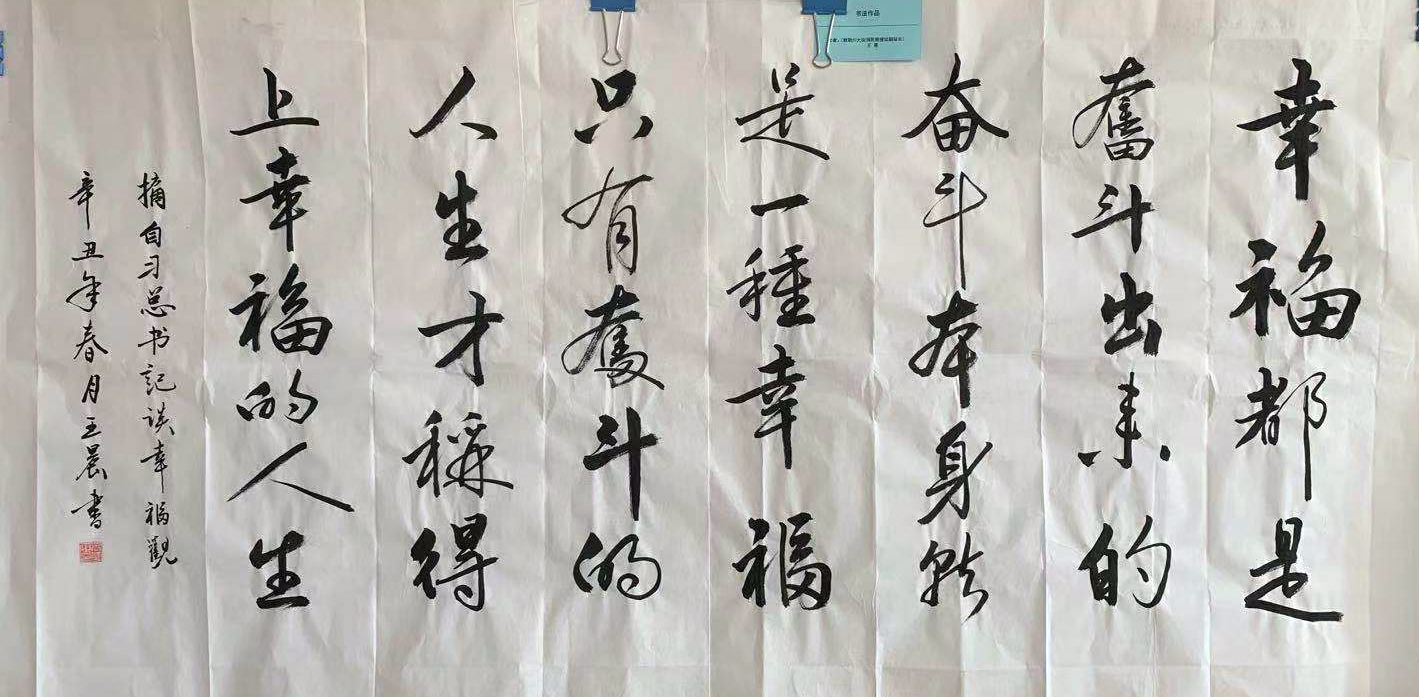 幸福都是
奮斗出来的
奋斗本身就
是一種幸福
只有奮斗的
人生才稱得
上幸福的人生
摘自习总书記谈幸福觀
辛丑年春月王晨书
书法作品